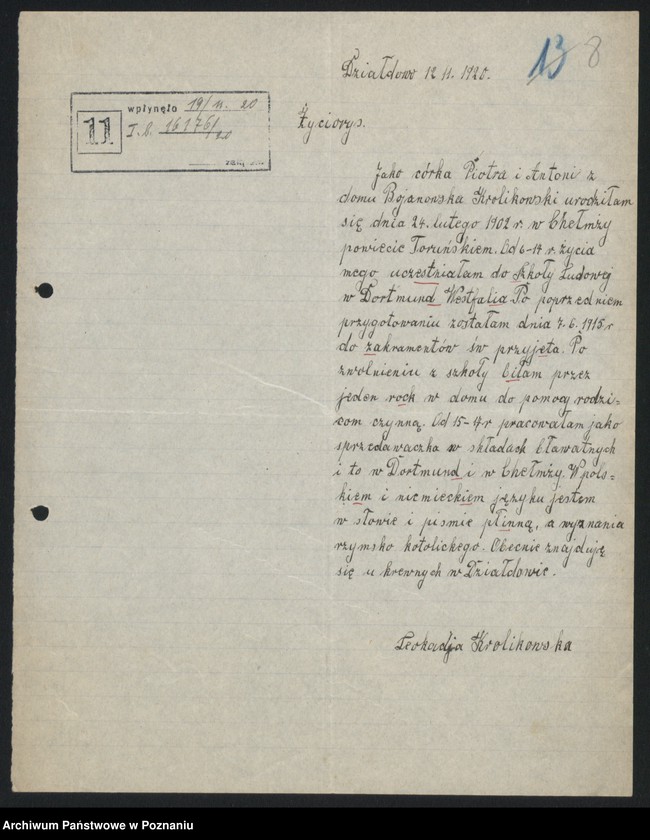 13 8
Działdowo 12 11. 1920.
wpłynęło 19/11. 20
11
I. b. 16176/20
Życiorys.
Jako córka Piotra i Antoni z
domu Bojanowska Krolikowski urodziłam
się dnia 24. lutego 1902 r. w Chełmży
powiecie Toruńskiem. Od 6-14 r. życia
mego uczestniałam do Szkoły Ludowej
w Dortmund Westfalia Po poprzedniem
przygotowaniu zostałam dnia 7. 6. 1915 r
do zakramentów św przyjęta. Po
zwolnieniu z szkoły biłam przez
jeden rock w domu do pomocy rodzi=
com czynną. Od 15-17 r pracowałam jako
sprzedawaczka w składach bławatnych
i to w Dortmund i w Chełmży. W pols=
kiem i niemieckiem języku jestem
w słowie i piśmie płinną, a wyznania
rzymsko katolickego. Obecnie znajduję
się u krewnych w Działdowie.
Leokadja Krolikowska
Archiwum Państwowe w Poznaniu